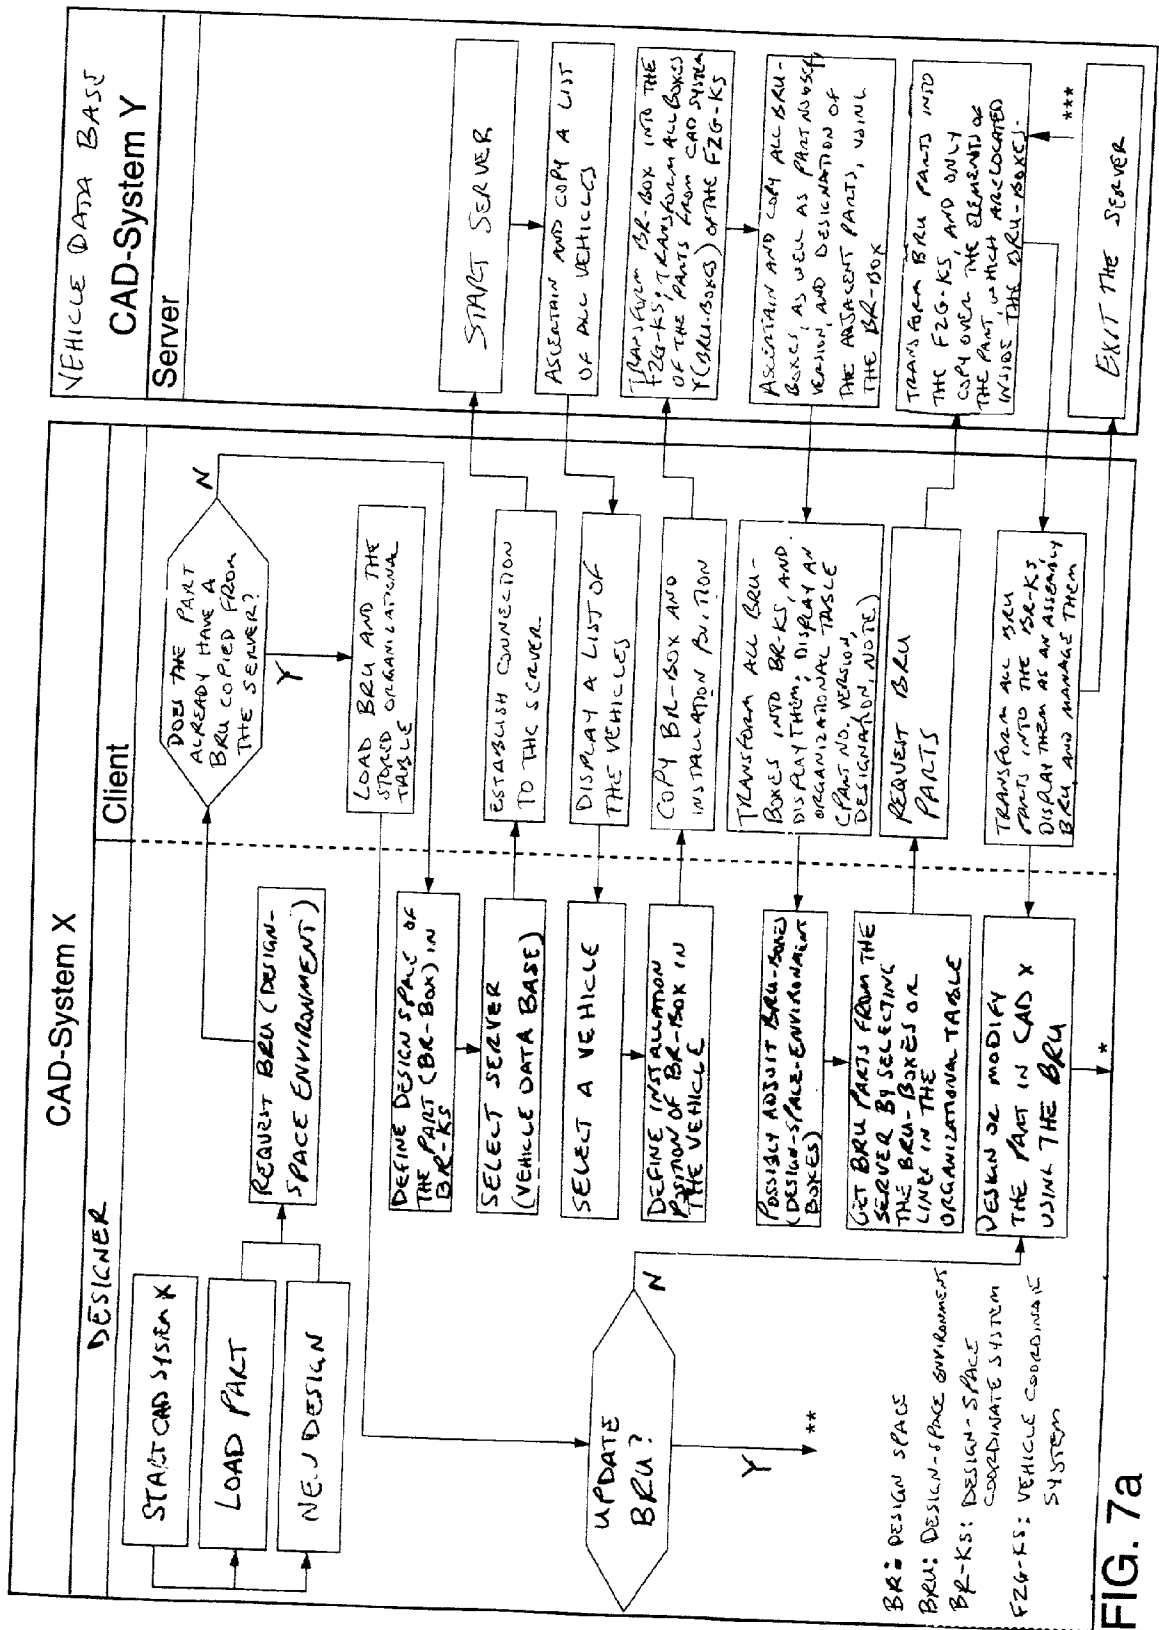 CAD-System X
DESIGNER
START CAD SYSTEM X
LOAD PART
NEW DESIGN
REQUEST BRU (DESIGN-
SPACE ENVIRONMENT)
DEFINE DESIGN SPACE OF
THE PART (BR-BOX) IN
BR-KS
SELECT SERVER
(VEHICLE DATA BASE)
SELECT A VEHICLE
DEFINE INSTALLATION
POSITION OF BR-BOX IN
THE VEHICLE
POSSIBLY ADJUST BRU-BOXES
(DESIGN-SPACE-ENVIRONMENT
BOXES)
GET BRU PARTS FROM THE
SERVER BY SELECTING
THE BRU-BOXES OR
LINES IN THE
ORGANIZATIONAL TABLE
DESIGN OR MODIFY
THE PART IN CAD X
USING THE BRU
*
UPDATE
BRU?
N
Y
**
BR: DESIGN SPACE
BRU: DESIGN-SPACE ENVIRONMENT
BR-KS: DESIGN-SPACE
COORDINATE SYSTEM
FZG-KS: VEHICLE COORDINATE
SYSTEM
Client
DOES THE PART
ALREADY HAVE A
BRU COPIED FROM
THE SERVER?
N
Y
LOAD BRU AND THE
STORED ORGANIZATIONAL
TABLE
ESTABLISH CONNECTION
TO THE SERVER
DISPLAY A LIST OF
THE VEHICLES
COPY BR-BOX AND
INSTALLATION
TRANSFORM ALL BRU-
BOXES INTO BR-KS, AND
DISPLAY THEM; DISPLAY AN
ORGANIZATIONAL TABLE
(PART NO. VERSION,
DESIGNATION, NOTE)
REQUEST BRU
PARTS
TRANSFORM ALL BRU
PARTS INTO THE BR-KS,
DISPLAY THEM AS AN ASSEMBLY
BRU, AND MANAGE THEM
VEHICLE DATA BASE
CAD-System Y
Server
START SERVER
ASCERTAIN AND COPY A LIST
OF ALL VEHICLES
TRANSFORM BR-BOX INTO THE
FZG-KS; TRANSFORM ALL BOXES
OF THE PARTS FROM CAD SYSTEM
Y (BRU-BOXES) OF THE FZG-KS
ASCERTAIN AND COPY ALL BRU-
BOXES, AS WELL AS PART
VERSION, AND DESIGNATION OF
THE ADJACENT PARTS, USING
THE BR-BOX
TRANSFORM BRU PARTS INTO
THE FZG-KS, AND ONLY
COPY OVER THE ELEMENTS OF
THE PART, WHICH ARE LOCATED
INSIDE THE BRU-BOXES.
***
EXIT THE SERVER
FIG. 7a